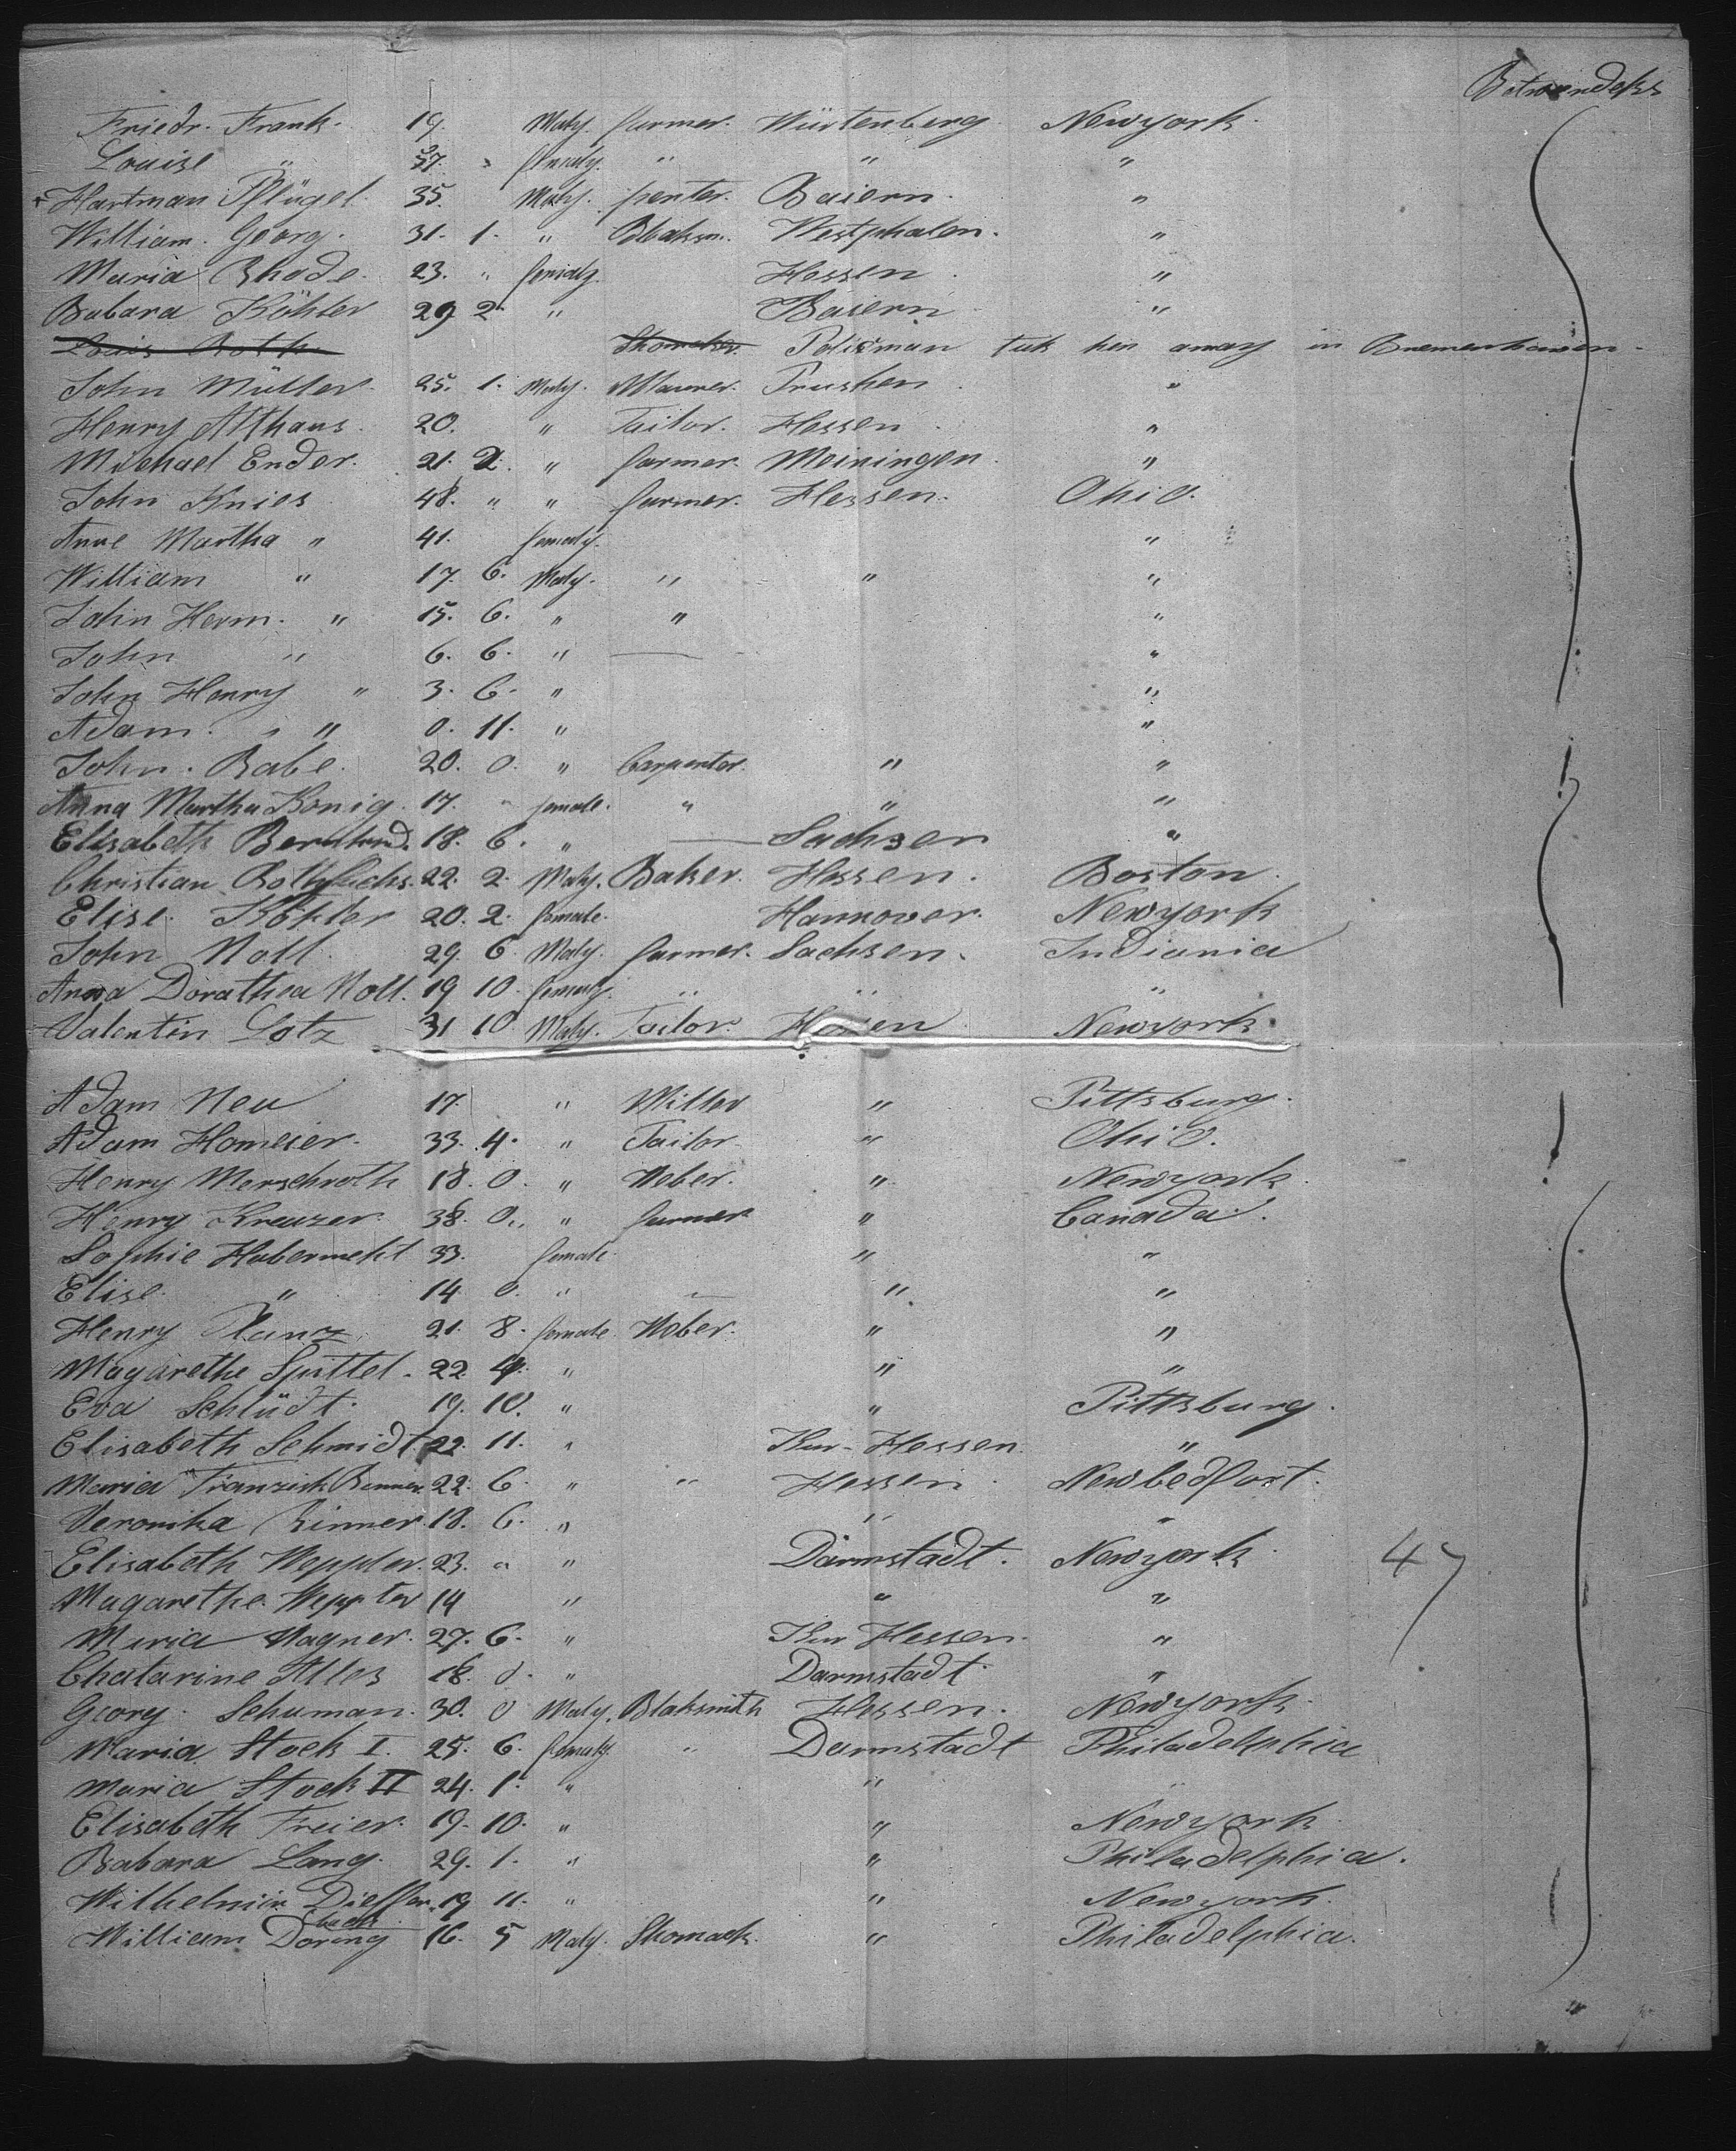 Betweendeks
Friedr. Frank. 19. Maly. farmer. Würtenberg. Newyork.
Louise " 57. " femaly. " " "
Hartman Pflügel. 35. Maly. penter. Baiern. "
William. Georg. 31. 1. " Blaksm. Westphalen. "
Maria Rhode. 23. " femaly. Hessen "
Babara Köhler 29 2. " Baiern "
Louis Roth Shomaker. Polisman tuk him away in Bremerhaven.
John Müller. 25. 1. Maly. Maurer. Prushen. "
Henry Althaus. 20. " Tailor. Hessen. "
Michael Ender. 21. 2. " farmer. Meiningen. "
John Knies 48. " " farmer. Hessen. Ohio.
Anne Martha " 41. femaly. "
William " 17. 6. Maly. " " "
John Herm. " 15. 6. " " "
John " 6. 6. " — "
John Henry " 3. 6. " "
Adam. " " 0. 11. " "
John. Rabe. 20. 0. " Carpenter. " "
Anna Martha König. 17. " female. " " "
Elisabeth 18. 6. " — Sachsen "
Christian 22. 2. Maly. Baker. Hessen. Boston.
Elise Köhler 20. 2. female. Hannover. Newyork
John Noll. 29. 6. Maly. farmer. Sachsen. Indiania
Anna Dorathea Noll. 19 10. femaly. " " "
Valentin Lotz 31 10 Maly. Tailor. Hessen Newyork.
Adam Neu 17. " Miller " Pittsburg.
Adam Homeier. 33. 4. " Tailor " Ohio.
Henry Merschroth 18. 0. " Weber. " Newyork.
Henry Kreuzer. 38. 0. " farmer " Canada.
Sophie Habermehl 33. female " "
Elise " 14 0. " — " "
Henry 21. 8. female Weber. " "
Magarethe Spittel. 22 4. " " "
Eva Schlüdt. 19. 10. " " Pittsburg.
Elisabeth Schmidt 22. 11. " Kur-Hessen. "
Maria Franzisk 22. 6. " " Hessen. Newbedfort.
Veronika Rinner. 18. 6. " " "
Elisabeth Weppler. 23. " " Darmstadt. Newyork. 47
Magarethe Weppler 14 " " "
Maria Wagner. 27. 6. " Kur Hessen. "
Chatarine Alles 18. 0. " Darmstadt. "
Georg. Schuman. 30. 0 Maly. Blaksmith Hessen. Newyork.
Maria Stock I. 25. 6. femaly. " Darmstadt Philadelphia
Maria Stock II 24. 1. " " "
Elisabeth Freier. 19. 10. " " Newyork.
Babara Lang. 29. 1. " " Philadelphia.
Wilhelmin Dieffen 19 11. " " Newyork.
bach.
William Döring 16. 5 Maly. Shomack. " Philadelphia.